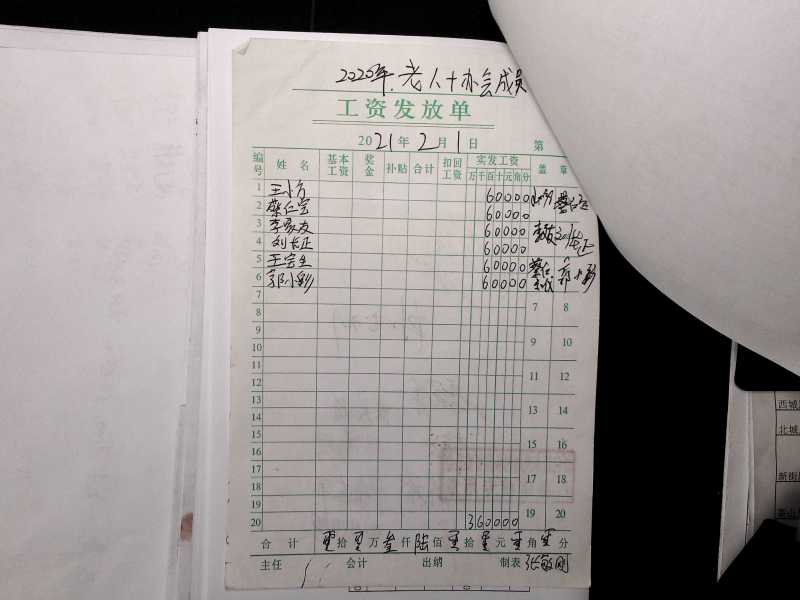 2020年.老人十办会成员
工资发放单
2021年2月1日 第
编号 姓名 基本工资 奖金 补贴 合计 扣回工资 实发工资 盖章
万 千 百 十 元 角 分
1 王小方 60000
2 蔡仁堂 60000
3 李家友 60000
4 刘长正 60000
5 王宗生 60000
6 郭小彩 60000
7 7 8
8
9 9 10
10
11 11 12
12
13 13 14
14
15 15 16
16
17 17 18
18
19 19 20
20 360000
合计 零拾零万叁仟陆佰零拾零元零角零分
主任 会计 出纳 制表 张敏刚
西城
北城
新街